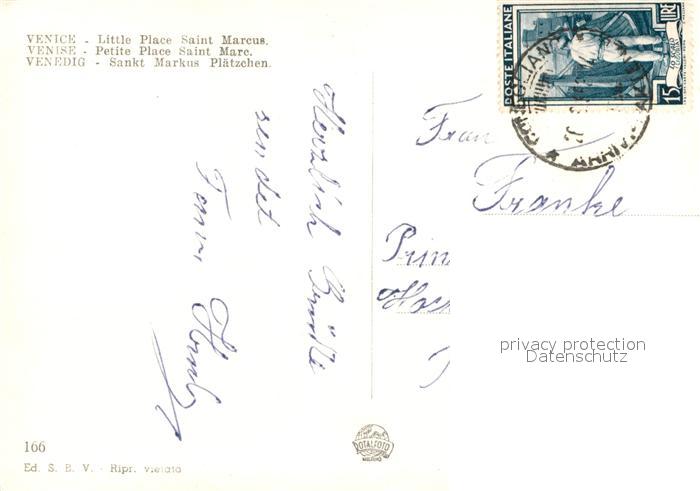 VENICE - Little Place Saint Marcus.
VENISE - Petite Place Saint Marc.
VENEDIG - Sankt Markus Plätzchen.
Herzlich Grüße
sendet
Fam.
POSTE ITALIANE
15 LIRE
Frau
Franke
Prin
privacy protection
Datenschutz
166
Ed. S. B. V. - Ripr. vietata
ROTALFOTO
MILANO